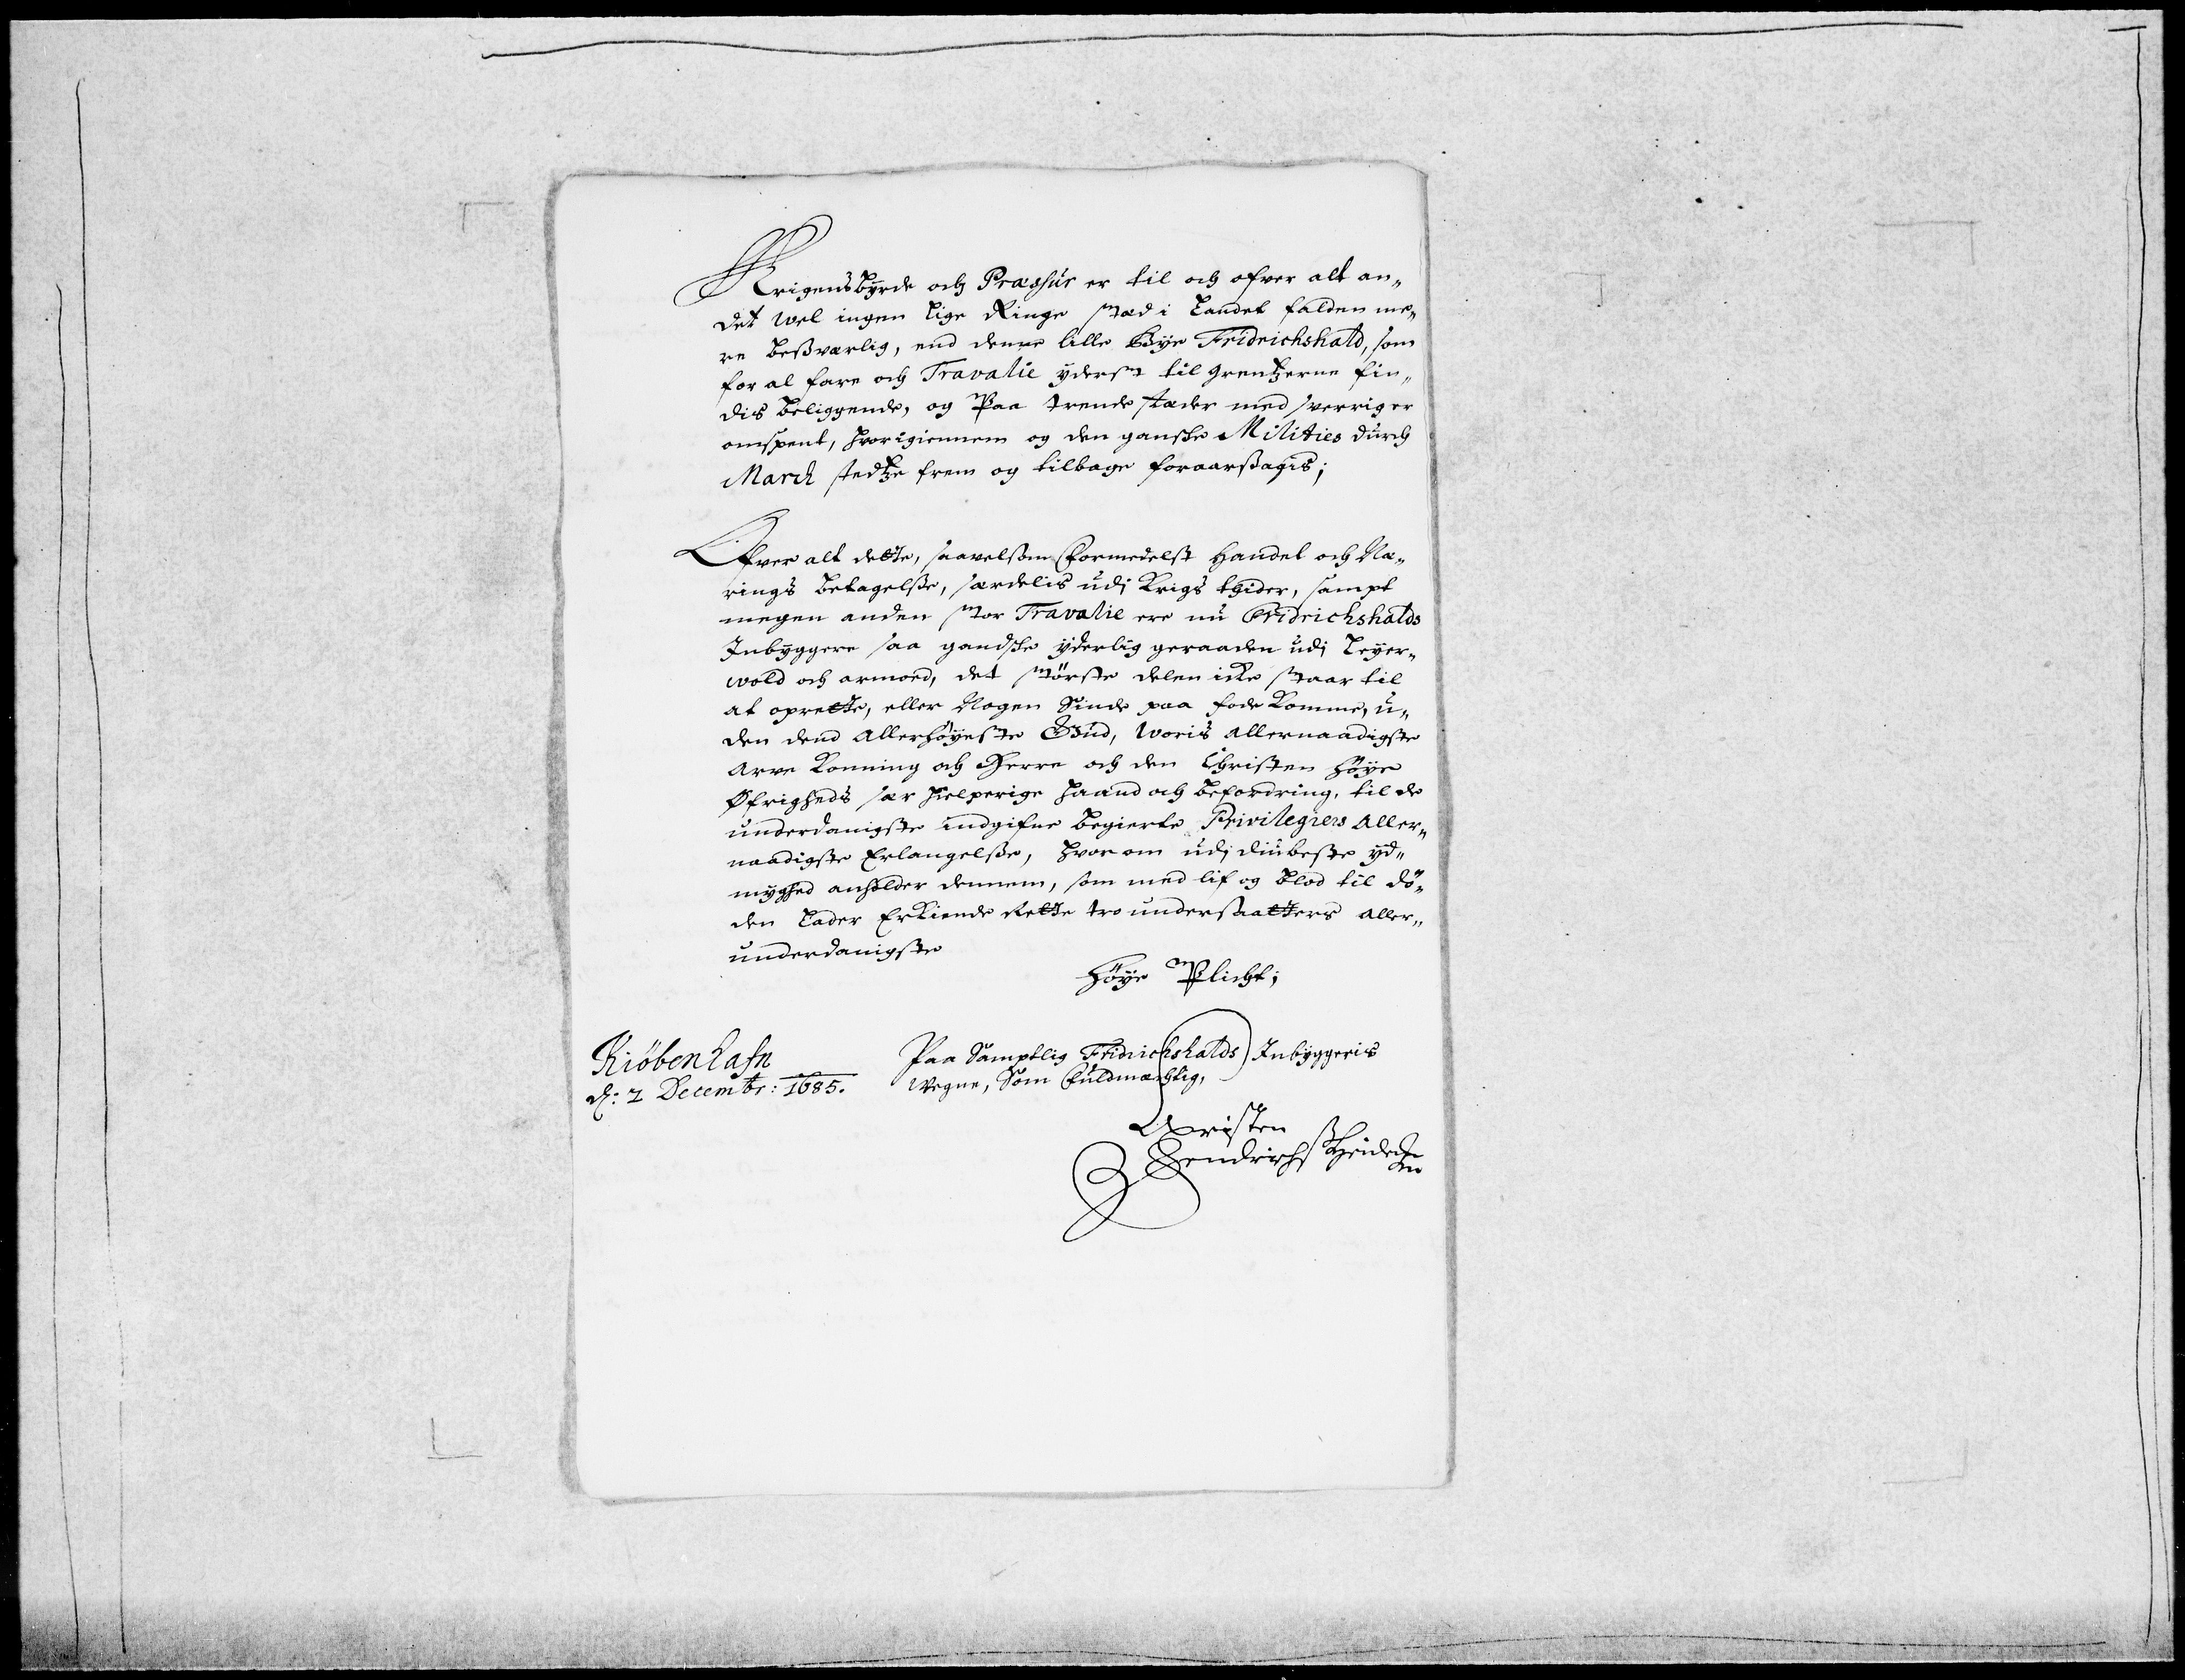 Krigens byrde och Præssur er til och ofver alt an„
det wel ingen lige Ringe stæd i Landet falden me„
re beßværlig, end denne lille Bye Fridrichshald, som
for al fare och Travalie yderst til Grentzerne fin„
dis beliggende, og Paa trende stæder med Sverrig er
omspent, hvorigiennem og den gansche Militiés durch
March stedtze frem og tilbage foraarsagis;
Ofver alt dette, saavelsom formedelst Handel och Næ„
rings betagelße, særdelis udj Krigs thider, sampt
megen anden stor Travalie ere nu Fridrichshalds
Inbyggere saa gandsche yderlig geraaden udj Leyer„
wold och armoed, det störste delen icke staar til
at oprette, eller Nogen Sinde paa fode komme, u„
den dend Allerhöyeste Gud, woris allernaadigste
Arve Konning och Herre och den Christen höye
Øfrigheds sær hielperige haand och befordring, til de
underdanigste indgifne begierte Privilegiers Aller„
naadigste Erlangelße, hvorom udj diubeste yd„
myghed anholder dennem, som med lif og blod til dö„
den lader Erkiende Rette tro undersaatters aller„
underdanigste
höye Plicht;
Kiöbenhafn
d: 2 Decembr: 1685.
Paa Samptlig Fridrichshalds Inbyggeris
Wegne, Som fuldmæchtig,
Christen
Hendrichs